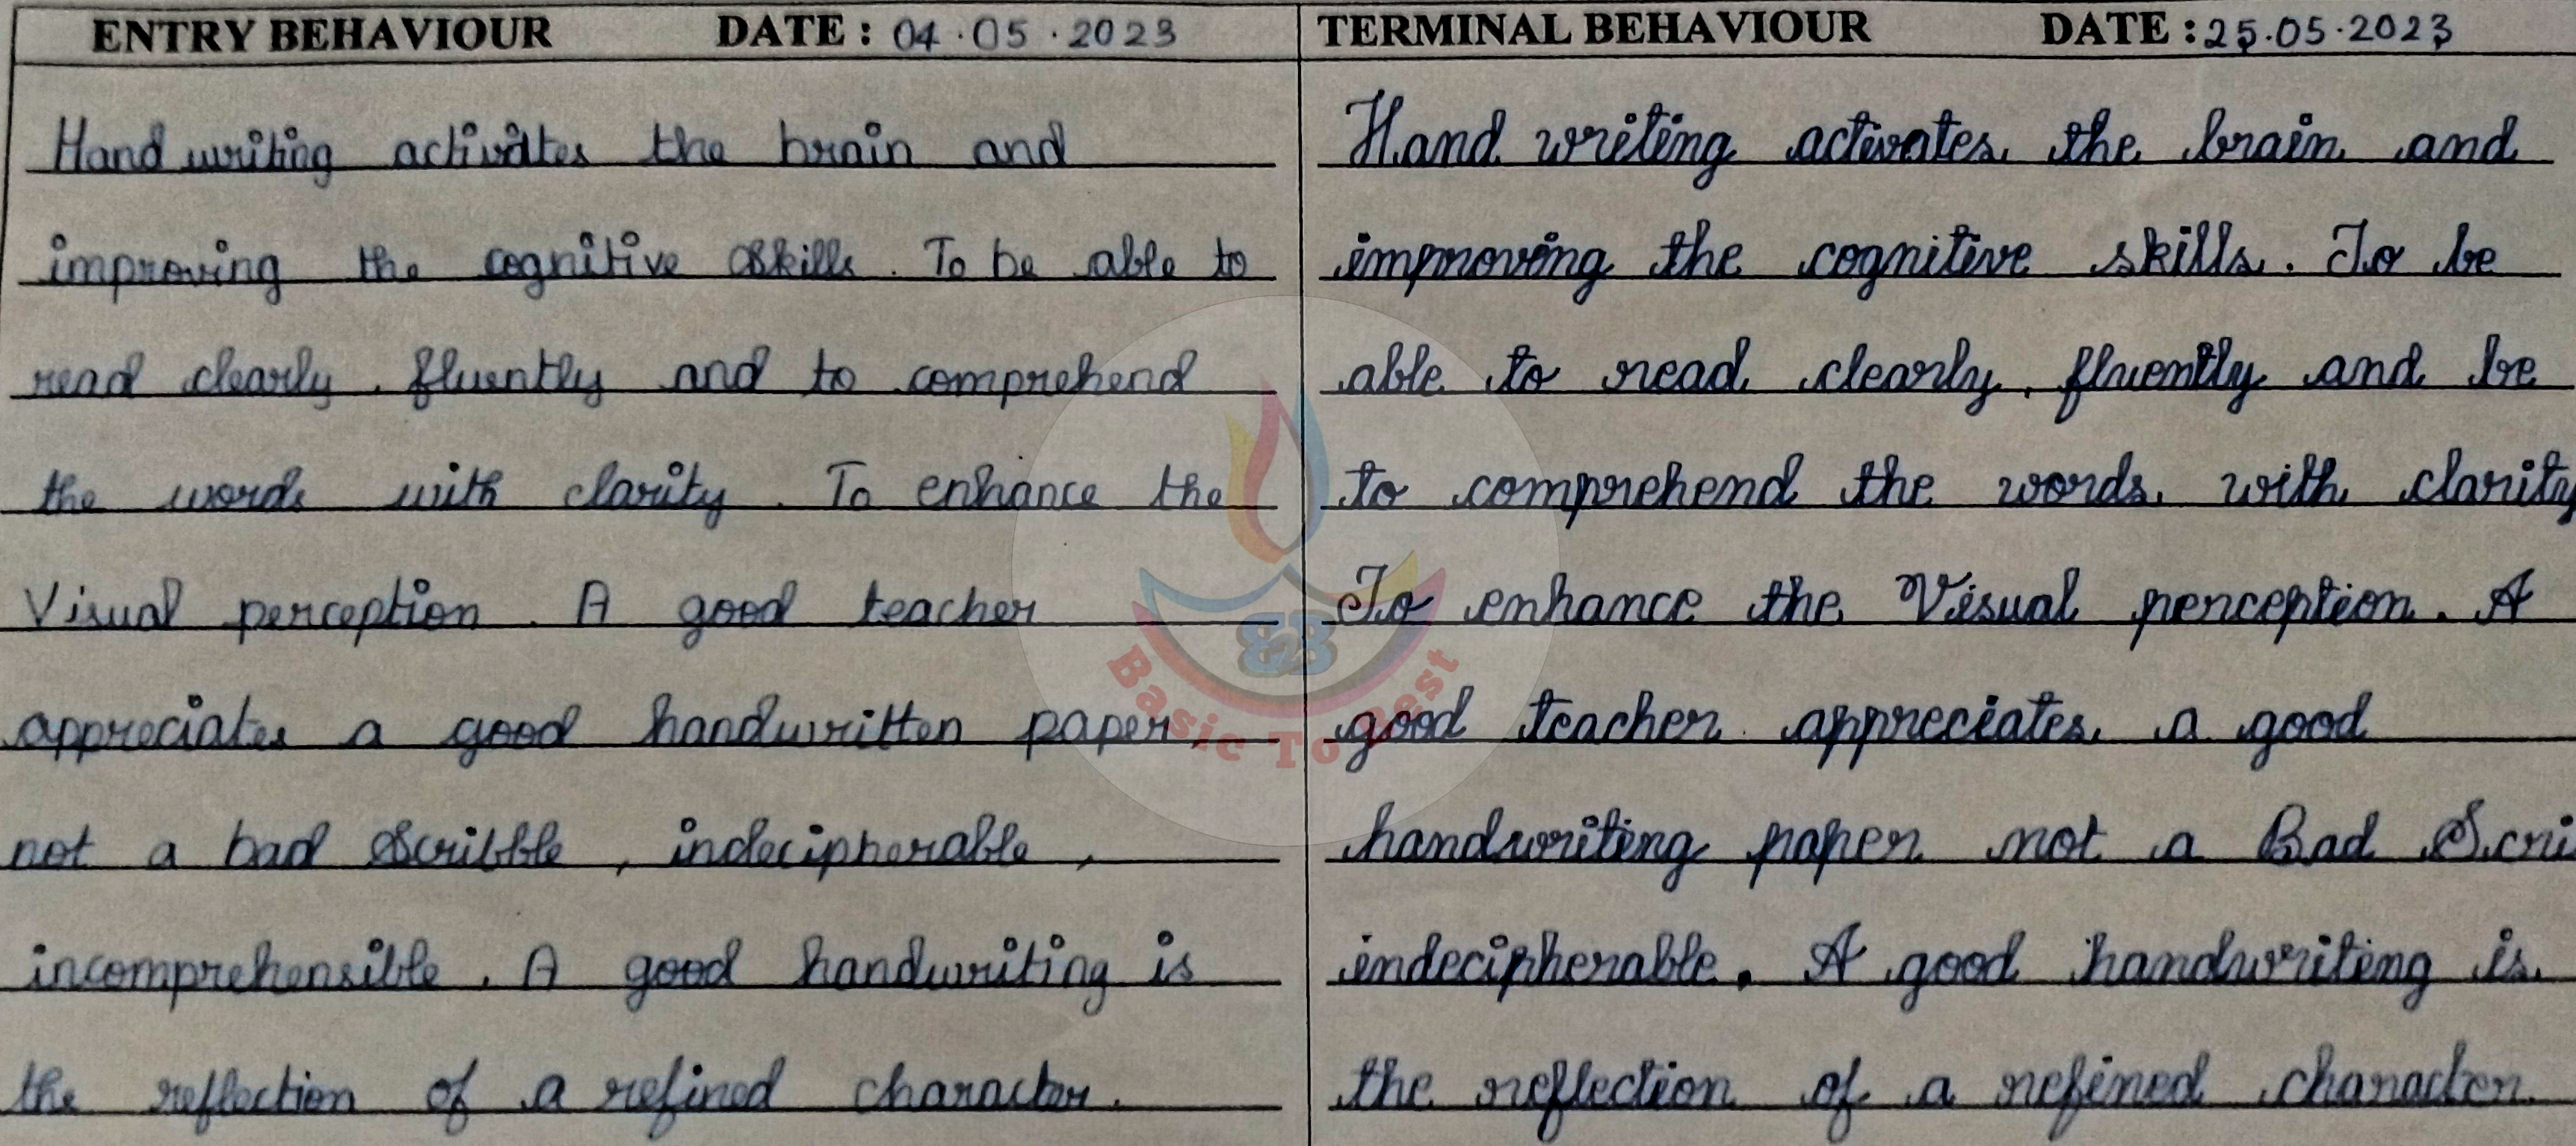 ENTRY BEHAVIOUR DATE : 04.05.2023
Hand writing activates the brain and
improving the cognitive skills. To be able to
read clearly, fluently and to comprehend
the words with clarity. To enhance the
Visual perception. A good teacher
appreciates a good handwritten paper,
not a bad Scribble, indecipherable,
incomprehensible. A good handwriting is
the reflection of a refined character.
TERMINAL BEHAVIOUR DATE : 25.05.2023
Hand writing activates the brain and
improving the cognitive skills. To be
able to read clearly, fluently and be
to comprehend the words with clarity
To enhance the Visual perception. A
good teacher appreciates a good
handwriting paper not a Bad Scri
indecipherable. A good handwriting is
the reflection of a refined character.
B2B
Basic To Best